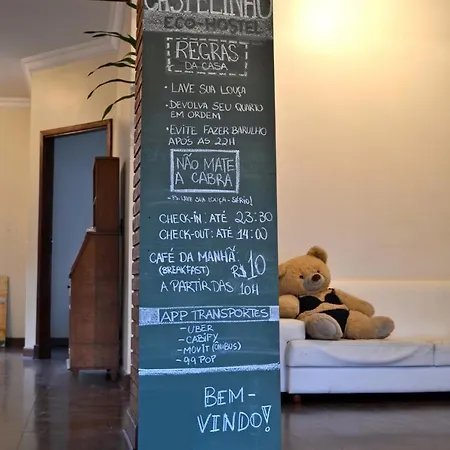 CASTELINHO
ECO-HOSTEL
REGRAS
DA CASA
• LAVE SUA LOUÇA
• DEVOLVA SEU QUARTO
EM ORDEM
• EVITE FAZER BARULHO
APÓS AS 22H
NÃO MATE
A CABRA
- PS: LAVE SUA LOUÇA - SÉRIO!
CHECK-IN: ATÉ 23:30
CHECK-OUT: ATÉ 14:00
CAFÉ DA MANHÃ
(BREAKFAST) R$10
A PARTIR DAS 10H
APP TRANSPORTES
- UBER
- CABIFY
- MOVIT (ÔNIBUS)
- 99 POP
BEM-
VINDO!